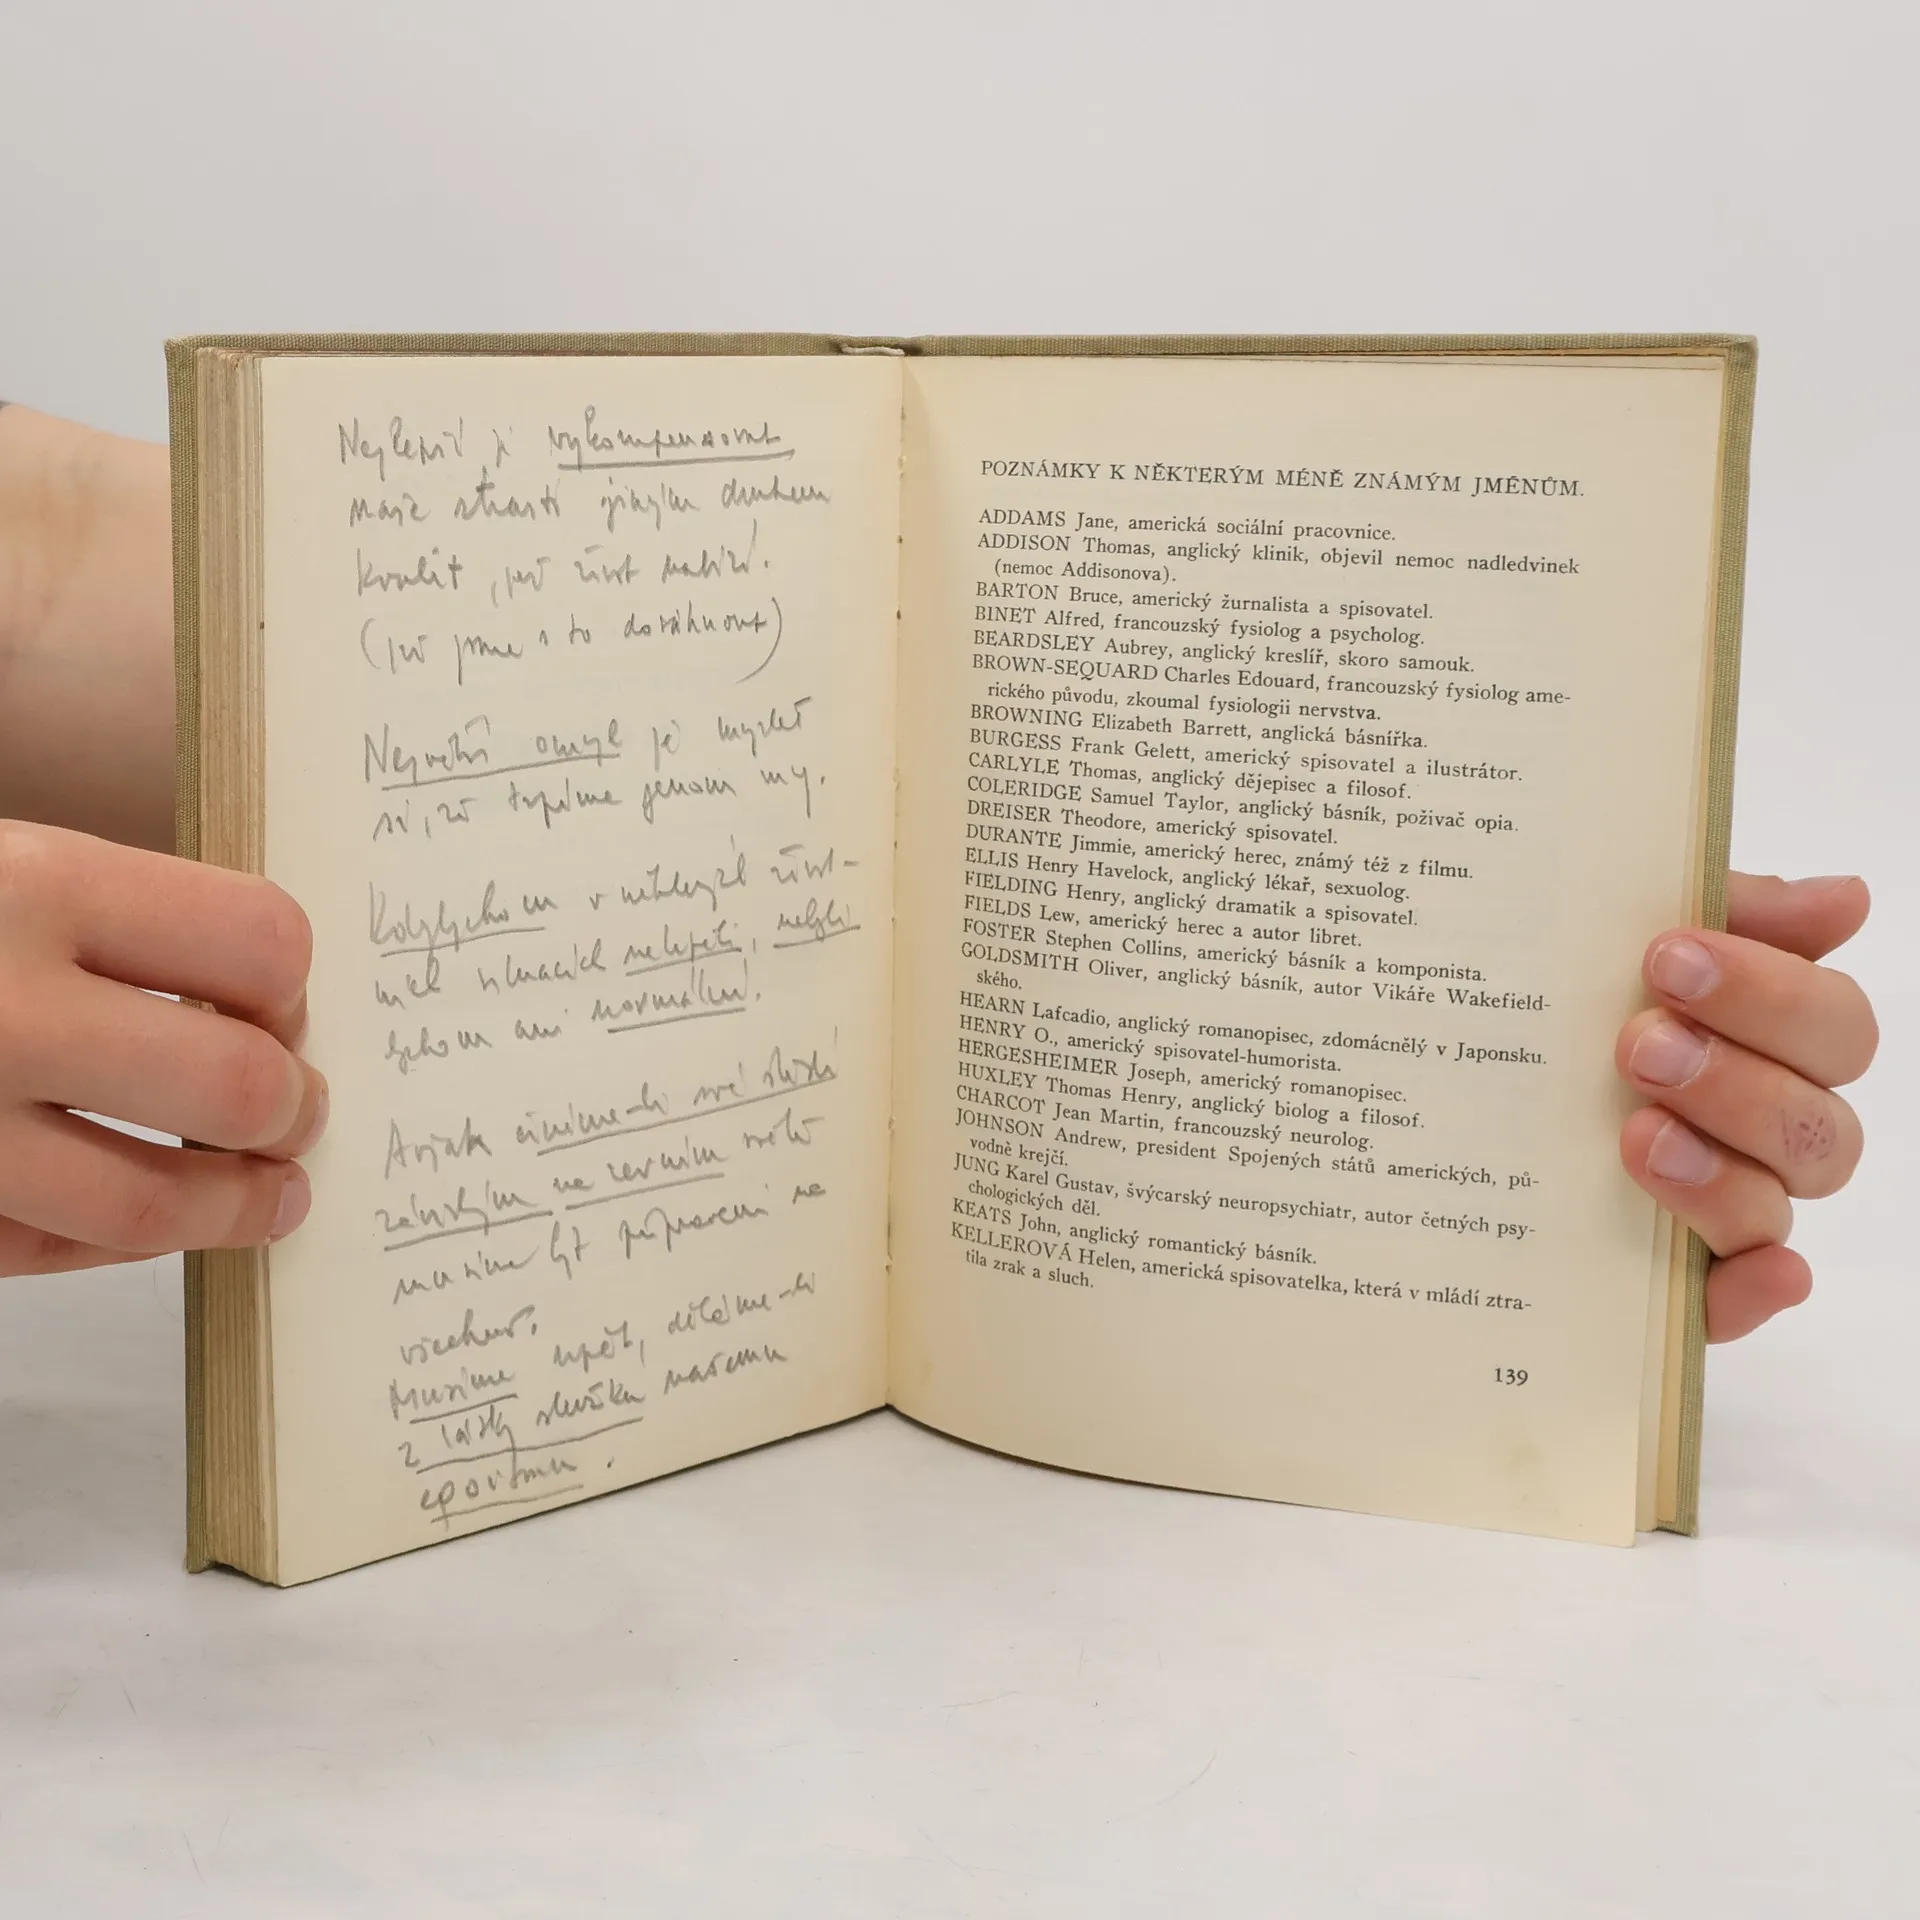 Nejlepší je vykompensovat
naše strasti jiným druhem
kvalit, jež život nabízí.
(jež jsme s to dosáhnout)
Největší omyl je myslet
si, že trpíme jenom my.
Kdybychom v někdejších život-
ních situacích netrpěli, nebyli
bychom ani normální.
Avšak činíme-li své štěstí
závislým na zevním světě
musíme být připraveni na
všechno.
Musíme úpět, děláme-li
z lásky služku našemu
egoismu.
POZNÁMKY K NĚKTERÝM MÉNĚ ZNÁMÝM JMÉNŮM.
ADDAMS Jane, americká sociální pracovnice.
ADDISON Thomas, anglický klinik, objevil nemoc nadledvinek
(nemoc Addisonova).
BARTON Bruce, americký žurnalista a spisovatel.
BINET Alfred, francouzský fysiolog a psycholog.
BEARDSLEY Aubrey, anglický kreslíř, skoro samouk.
BROWN-SEQUARD Charles Edouard, francouzský fysiolog ame-
rického původu, zkoumal fysiologii nervstva.
BROWNING Elizabeth Barrett, anglická básnířka.
BURGESS Frank Gelett, americký spisovatel a ilustrátor.
CARLYLE Thomas, anglický dějepisec a filosof.
COLERIDGE Samuel Taylor, anglický básník, poživač opia.
DREISER Theodore, americký spisovatel.
DURANTE Jimmie, americký herec, známý též z filmu.
ELLIS Henry Havelock, anglický lékař, sexuolog.
FIELDING Henry, anglický dramatik a spisovatel.
FIELDS Lew, americký herec a autor libret.
FOSTER Stephen Collins, americký básník a komponista.
GOLDSMITH Oliver, anglický básník, autor Vikáře Wakefield-
ského.
HEARN Lafcadio, anglický romanopisec, zdomácnělý v Japonsku.
HENRY O., americký spisovatel-humorista.
HERGESHEIMER Joseph, americký romanopisec.
HUXLEY Thomas Henry, anglický biolog a filosof.
CHARCOT Jean Martin, francouzský neurolog.
JOHNSON Andrew, president Spojených států amerických, pů-
vodně krejčí.
JUNG Karel Gustav, švýcarský neuropsychiatr, autor četných psy-
chologických děl.
KEATS John, anglický romantický básník.
KELLEROVÁ Helen, americká spisovatelka, která v mládí ztra-
tila zrak a sluch.
139